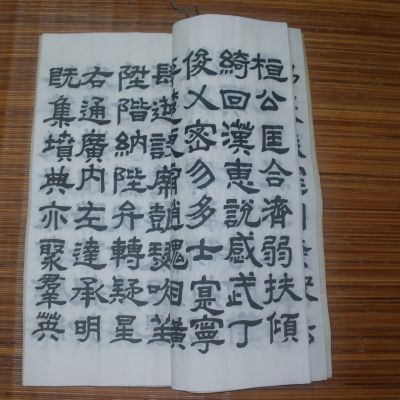 桓公匡合濟弱扶傾
綺回漢惠說感武丁
俊乂密勿多士寔寧
陞階納陛弁轉疑星
右通廣內左達承明
既集墳典亦聚羣英